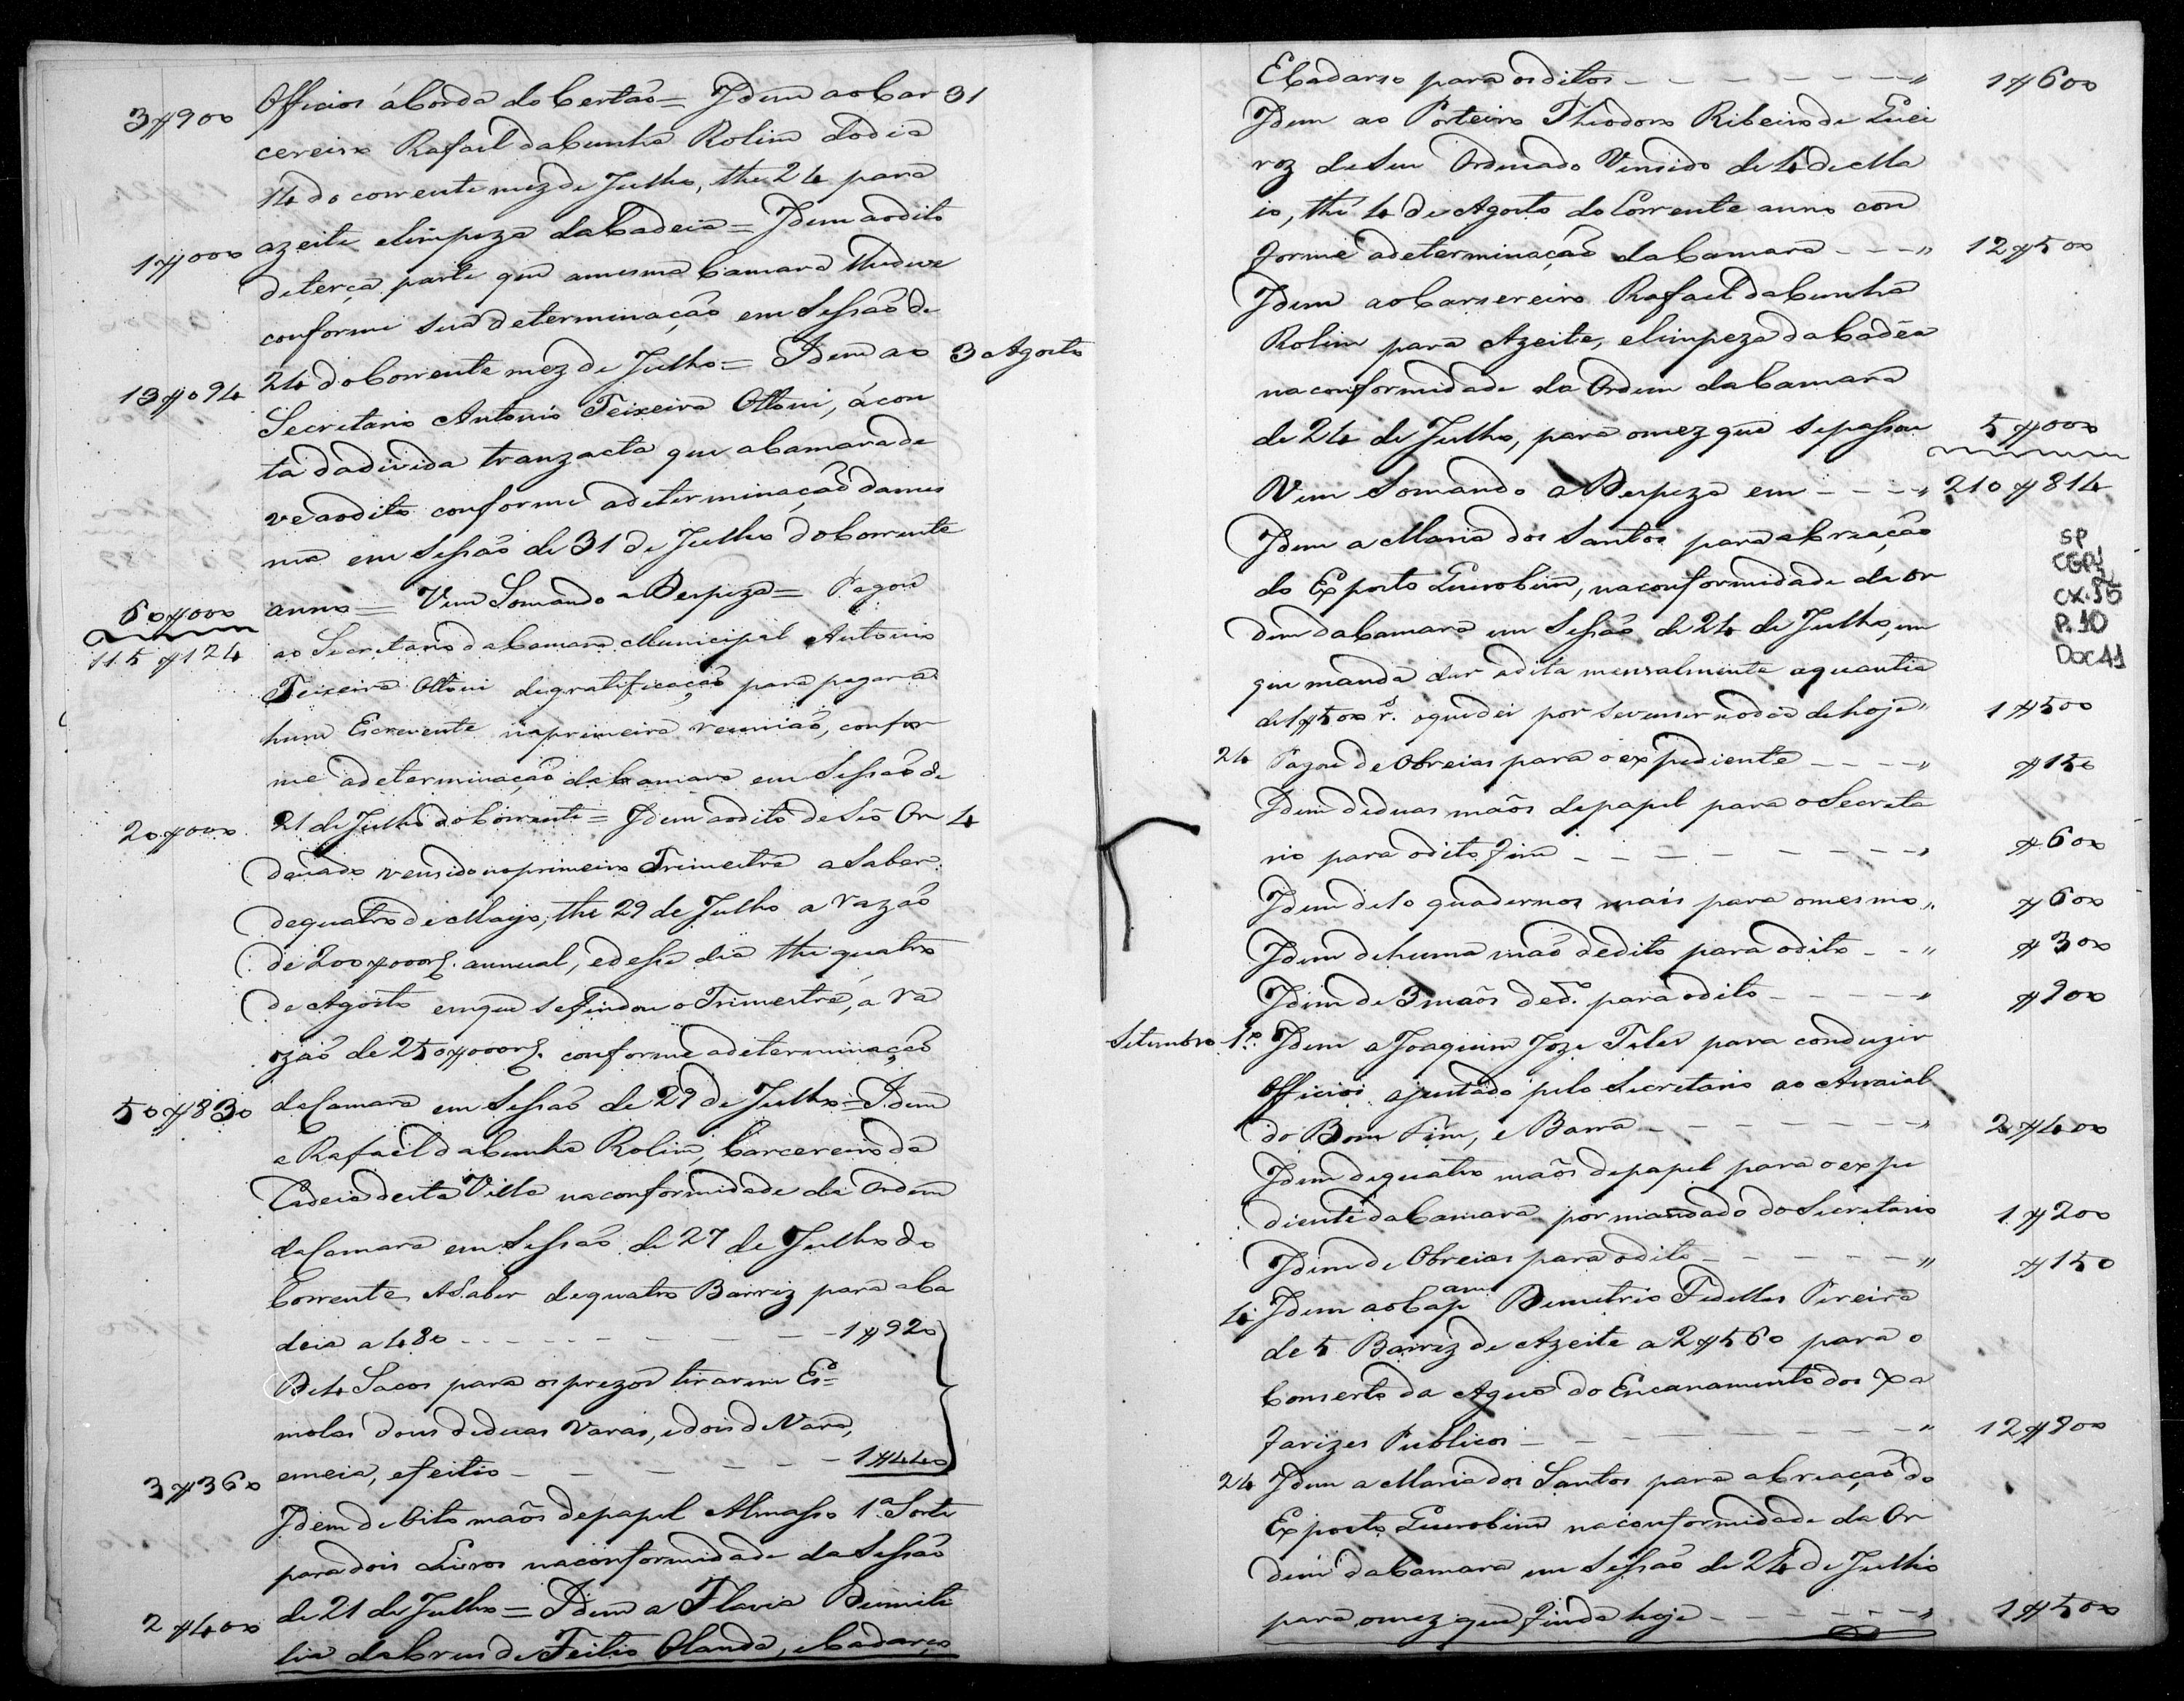 3$900 Officios á Borda do Certão = Idem ao Car 31
cereiro Rafael da Cunha Rolim do dia
14 do corrente mez de Julho, the 24 para
1$000 azeite e limpeza da Cadeia = Idem ao dito
de terça parte que a mesma Camara lhe deve
conforme sua determinação em Sessão de
13$094 24 do Corrente mez de Julho = Idem ao 3 Agosto
Secretario Antonio Teixeira Ottoni, á con
ta da divida tranzacta que a Camara de
ve ao dito conforme a determinação da mes
ma em Sessão de 31 de Julho do Corrente
60$000 anno = Vem Somando a Despeza = Pagou
115$124 ao Secretario da Camara Municipal Antonio
Teixeira Ottoni de gratificação para pagar a
hum Escrevente na primeira reunião, confor
me a determinação da Camara em Sessão de
20$000 21 de Julho do Corrente = Idem ao dito de Seo Or 4
denado vensido no primeiro Trimestre a Saber
de quatro de Mayo, the 29 de Julho a razão
de 200$000 rs. annual, e desse dia the quatro
de Agosto em que se findou o Trimestre, a ra
zão de 250$000 rs. conforme a determinação
50$830 da Camara em Sessão de 29 de Julho = Idem
a Rafael da Cunha Rolim, Carcereiro da
Cadeia desta Villa na conformidade da Ordem
da Camara em Sessão de 27 de Julho do
Corrente A Saber de quatro Barriz para a Ca
deia a 480 - - - - - - - 1$920
De 4 Sacos para os prezos tirarem Es=
molas dous de duas Varas, e dois de Vara,
3$360 e meia, e feitio - - - - - - 1$440
Idem de Oito mãos de papel Almasso 1ª Sorte
para dois Livros na conformidade da Sessão
2$400 de 21 de Julho = Idem a Flavia Dimiti
lia da Crus de Feitio Olanda, e Cadarço
E Cadarso para os ditos - - - - - - - " 1$600
Idem ao Porteiro Theodoro Ribeiro de Quei
roz de Seu Ordenado Vensido de 4 de Ma
io, thé 4 de Agosto do Corrente anno con
forme a determinação da Camara - - - " 12$500
Idem ao Carsereiro Rafael da Cunha
Rolim para Azeite, e limpeza da Cadêa
na conformidade da Ordem da Camara
de 24 de Julho, para o mez que se passou 5$000
Vem Somando a Despeza em - - - " 210$814
Idem a Maria dos Santos para a Criação
do Exposto Querobim, na conformidade da Or
dem da Camara em Sessão de 24 de Julho, em
que manda dar a dita mensalmente a quantia
de 1$500 rˢ. o que dei por se venser no dia de hoje " 1$500
24 Pagou de Obreias para o expediente - - - - " $150
Idem de duas mãos de papel para o Secreta
rio para o dito fim - - - - - - - " $600
Idem de 10 quadernos mais para o mesmo " $600
Idem de huma mão de dito para o dito - - " $300
Idem de 3 mãos de dº. para o dito - - - - - " $900
Setembro 1º. Idem a Joaquim Joze Teles para conduzir
Officios ajustado pelo Secretario ao Arraial
do Bom Fim, e Barra - - - - - - - " 2$400
Idem de quatro mãos de papel para o expe
diente da Camara por mandado do Secretario 1$200
Idem de Obreias para o dito - - - - - - " $150
4 Idem ao Cap am Demetrio Fidelles Pereira
de 5 Barriz de Azeite a 2$560 para o
Conserto da Agua do Encanamento dos Xa
farizes Publicos - - - - - - - " 12$800
24 Idem a Maria dos Santos para a Criação do
Exposto Querobim na conformidade da Or
dem da Camara em Sessão de 24 de Julho
para o mez que finda hoje - - - - - - " 1$500
SP
CGPI
CX. 55
P. 10
DOC 41